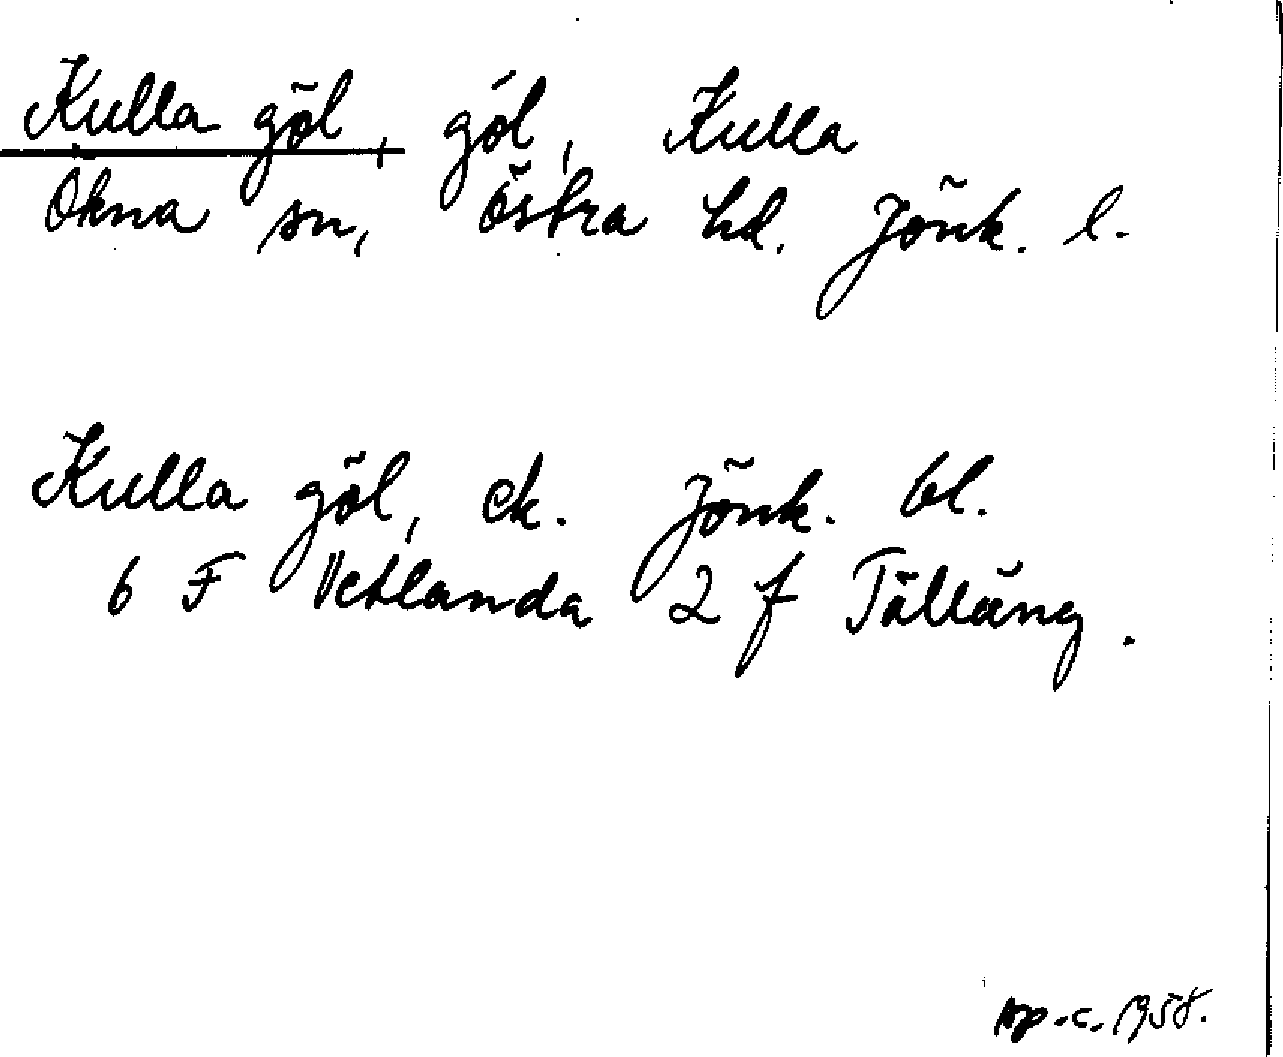 Kulla göl, göl, Kulla
Ökna sn, Östra hd. Jönk. l.
Kulla göl, ek. Jönk. bl.
6 F Vetlanda 2 f Tälläng.
top.-c. 1958.